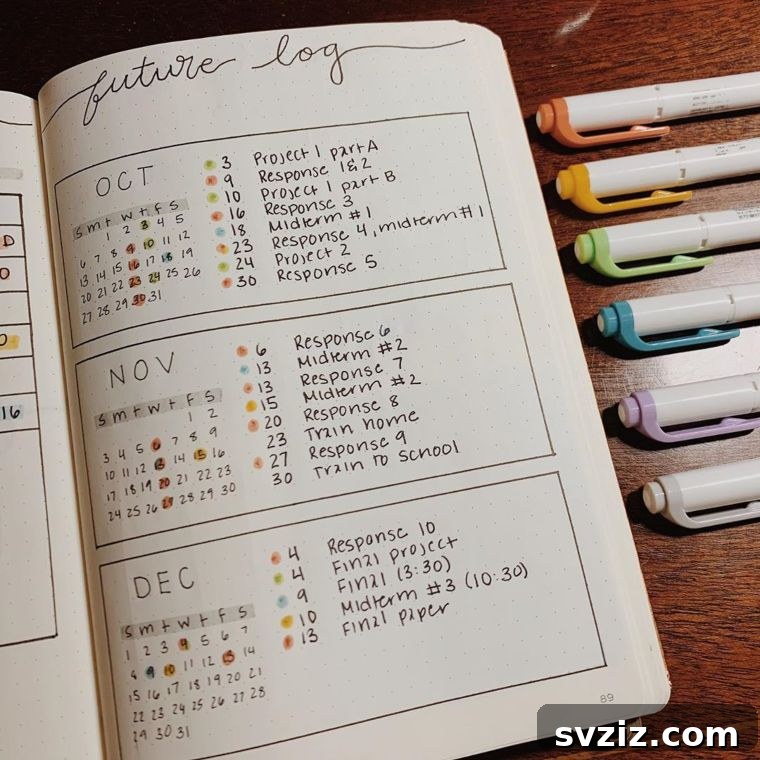 future log
OCT
s m t w t f s
1 2 3 4 5
6 7 8 9 10 11 12
13 14 15 16 17 18 19
20 21 22 23 24 25 26
27 28 29 30 31
3 Project 1 part A
9 Response 1&2
10 Project 1 part B
16 Response 3
18 Midterm #1
23 Response 4, midterm #1
24 Project 2
30 Response 5
NOV
s m t w t f s
1 2
3 4 5 6 7 8 9
10 11 12 13 14 15 16
17 18 19 20 21 22 23
24 25 26 27 28 29 30
6 Response 6
13 Midterm #2
13 Response 7
15 Midterm #2
20 Response 8
23 Train home
27 Response 9
30 Train to school
DEC
s m t w t f s
1 2 3 4 5 6 7
9 10 11 12 13 14
15 16 17 18 19 20 21
22 23 24 25 26 27 28
29 30 31
4 Response 10
4 Final project
9 Final (3:30)
10 Midterm #3 (10:30)
13 Final paper
89
D
0
0
16
svziz.com